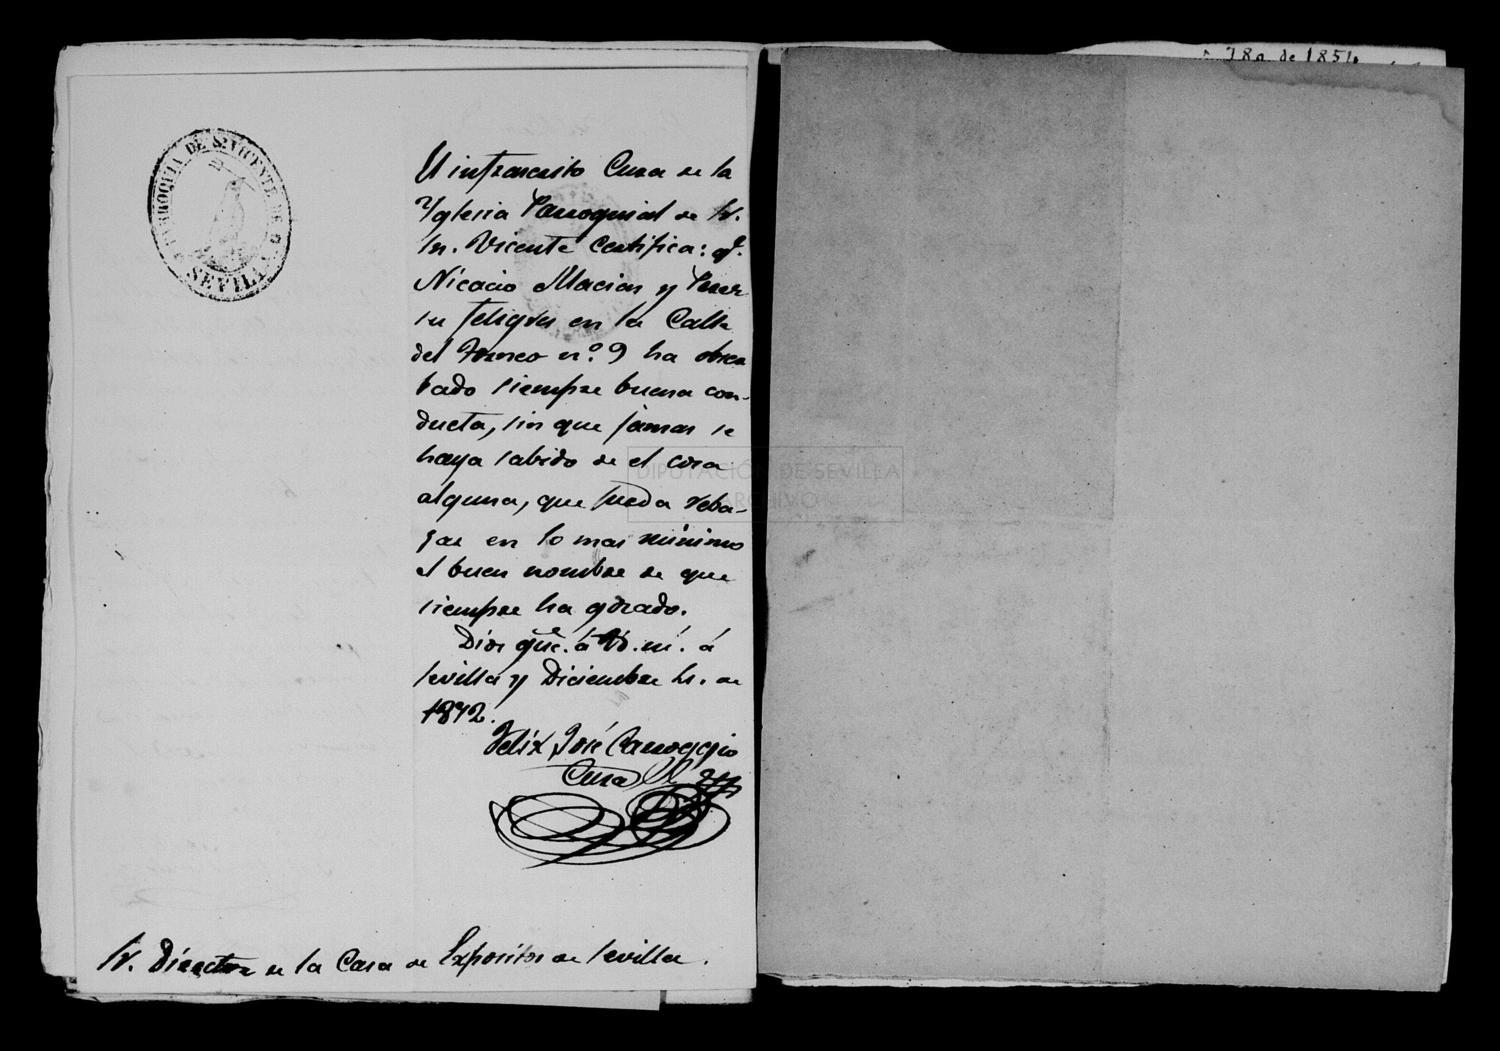 PARROQUIA DE Sn VICENTE DE
SEVILLA
El infrascrito Cura de la
Yglesia Parroquial de Sr.
Sn. Vicente Certifica: qe.
Nicacio Macias y Perez
su feligres en la Calle
del Franco nº. 9 ha obser
bado siempre buena con-
ducta, sin que jamas se
haya sabido de el cosa
alguna, que pueda reba-
jar en lo mas minimo
el buen nombre de que
siempre ha gozado.
Dios gue. á V. m. a.
Sevilla y Diciembre de
1872.
Felix José Carroggio
Cura
Sr. Director de la Casa de Expositos de Sevilla.
de 1854
DIPUTACIÓN DE SEVILLA
ARCHIVO